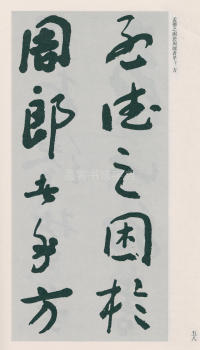 孟德之困於周郎者乎？方
孟德之困於
周郎者乎方
五八